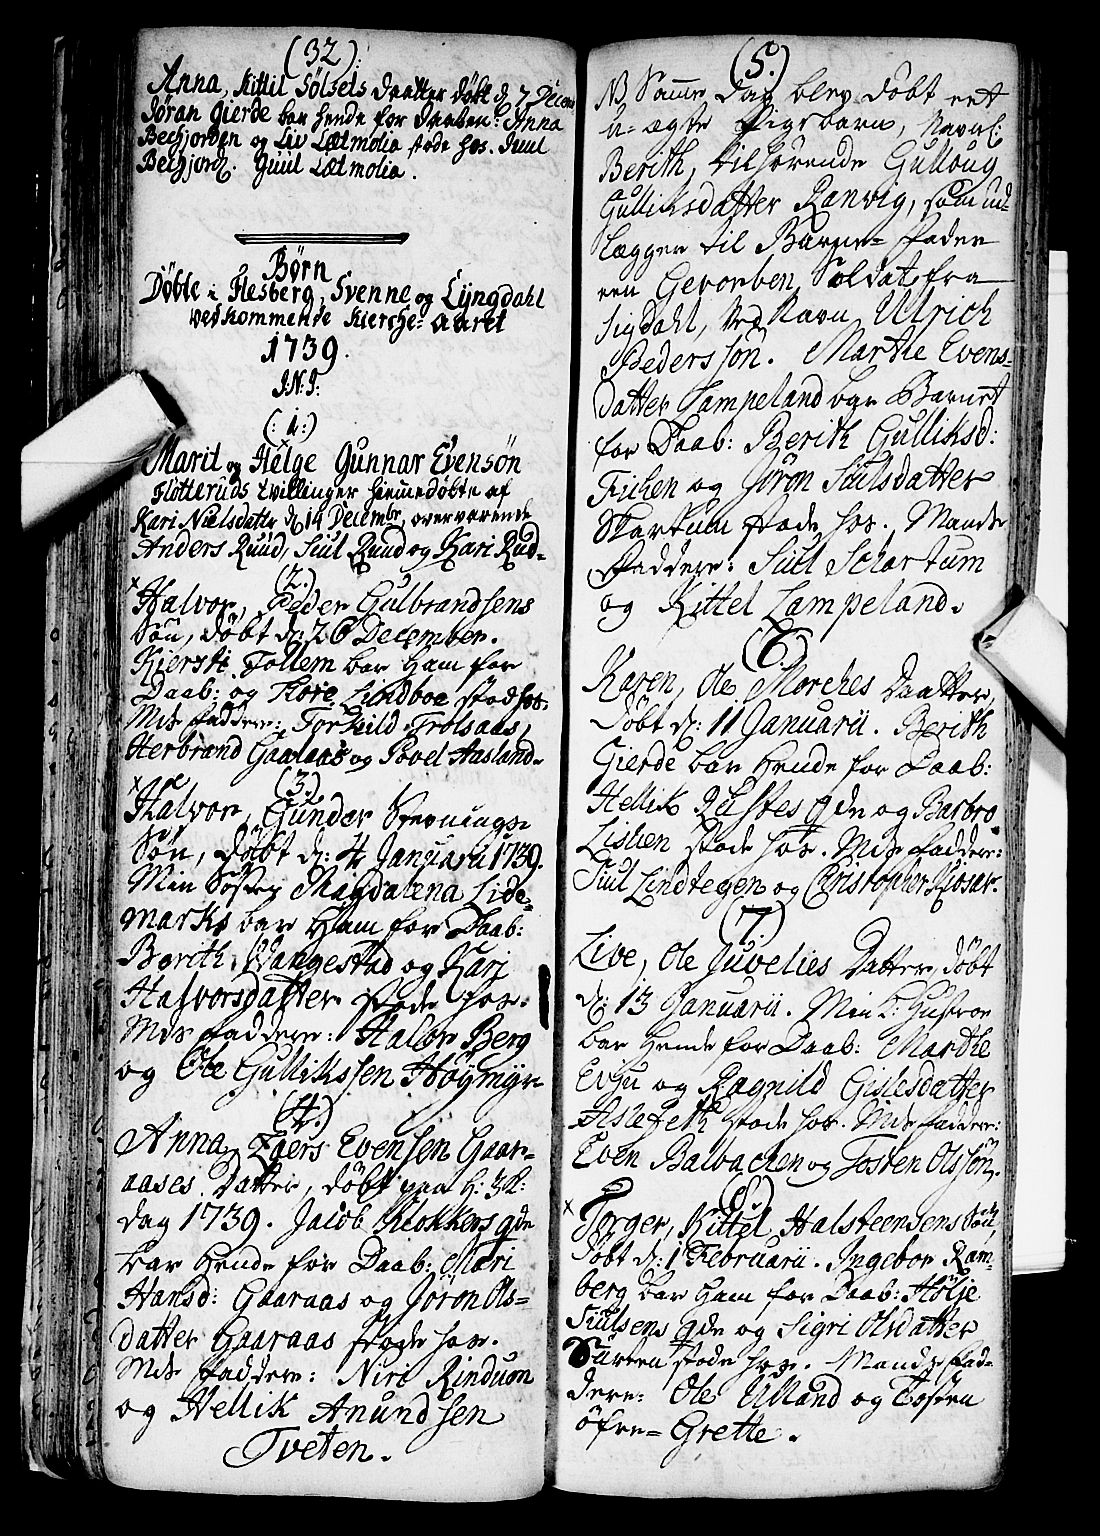 (32):
Anna, Kittil Sølsels Daatter døbt d. 7 Decem
Jøran Gierde bar hende for Daaben: Anna
Bechjorden og Liv Lætmolia stode hos. Juul
Bechjord: Guul Lætmolia.
Børn
Døbte i Flesberg, Svenne og Lyngdahl
vedkommende Kierche-Aaret
1739.
J.N.J:
(:1:)
Marit og Helge Gunnar Evensøn
Flötterüds tvillinger hiemmedøbte af
Kari Nielsdatter d. 14 Decembr, overværende
Anders Ruud, Juul Ruud og Kari Rud-
(2.)
Halvor, Peder Gulbrandsens
Søn, døbt d: 26 December.
Kiersti Follem bar ham for
Daab: og Tore Lindboe stod hos:
Mds faddere: Torkild Trolsaas,
Herbrand Gaaraas og Povel Aasland.
(3.)
Halvor, Gunder Stevnings
Søn, døbt d: 4 Januarii 1739.
Min Søster Magdalena Lide-
marks bar ham for Daab:
Berith Wangestad og Kari
Halvorsdatter stode hos:
Mds faddere: Halvor Berg
og Ole Gullikssen Höymyr
(4.)
Anna, Engers Evensen Gaar-
aases Datter, døbt paa H: 3 K:
dag 1739. Jacob Klokkers qde
bar hende for Daab: Mari
Hansd: Gaaraas og Jøron Ols-
datter Gaaraas stode hos.
Mds faddere: Niri Rinduom
og Hellik Anundsen
Tveten.
(5.)
NB Samme Dag blev døbt eet
u-ægte Pigebarn, Navnl:
Berith, tilhørende Gulloug
Gulliksdatter Ranvig, som ud-
lægger til Barne-Fader
een Gevorben Soldat fra
Sigdahl, ved Navn Ulrich
Pederssøn. Marthe Evens-
datter Lampeland bar Barnet
for Daab: Berith Gulliksd:
Fichen og Jøron Juulsdatter
Skartum stode hos. Mands
Faddere: Juel Schartum
og Kittel Lampeland.
(6.)
Karen, Ole Morches Daatter,
Döbt d: 11 Januarii. Berith
Gierde bar hende for Daab:
Hellik Rustes qde og Barbro
Lishen stode hos. Mds faddere:
Juul Lindtegen og Christopher Kiosar.
(7.)
Live, Ole Juvelies Datter, døbt
d: 13 Januarii. Min K: Hustroe
bar hende for Daab: Marthe
Evju og Ragnild Gislesdatter
Aslefeth stode hos. Mds faddere:
Even Balbachen og Tosten Olssøn.
(8.)
Torger, Kittel Halsteensens Søn,
Döbt d: 1 Februarii. Ingebor Ram-
berg bar ham for Daab: Hølje
Juulsens qde og Sigri Olsdatter
Surten stode hos. Mands Fad-
dere: Ole Ulland og Tosten
öfre-Grette.